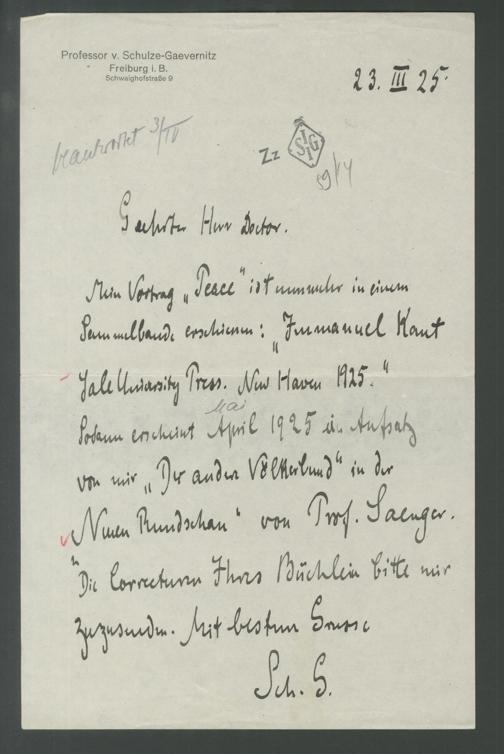 Professor v. Schulze-Gaevernitz
Freiburg i. B.
Schwaighofstraße 9
23. III 25.
beantwortet 3/IV
Zz
SIGI
9/4
Geehrter Herr Doctor.
Mein Vortrag „Peace“ ist nunmehr in einem
Sammelbande erschienen: „Immanuel Kant
Yale University Press. New Haven 1925.“
Mai
Sodann erscheint April 1925 ein Aufsatz
von mir „Der andere Völkerbund“ in der
„Neuen Rundschau“ von Prof. Saenger.
Die Correcturen Ihres Büchlein bitte mir
zuzusenden. Mit bestem Grusse
Sch. G.